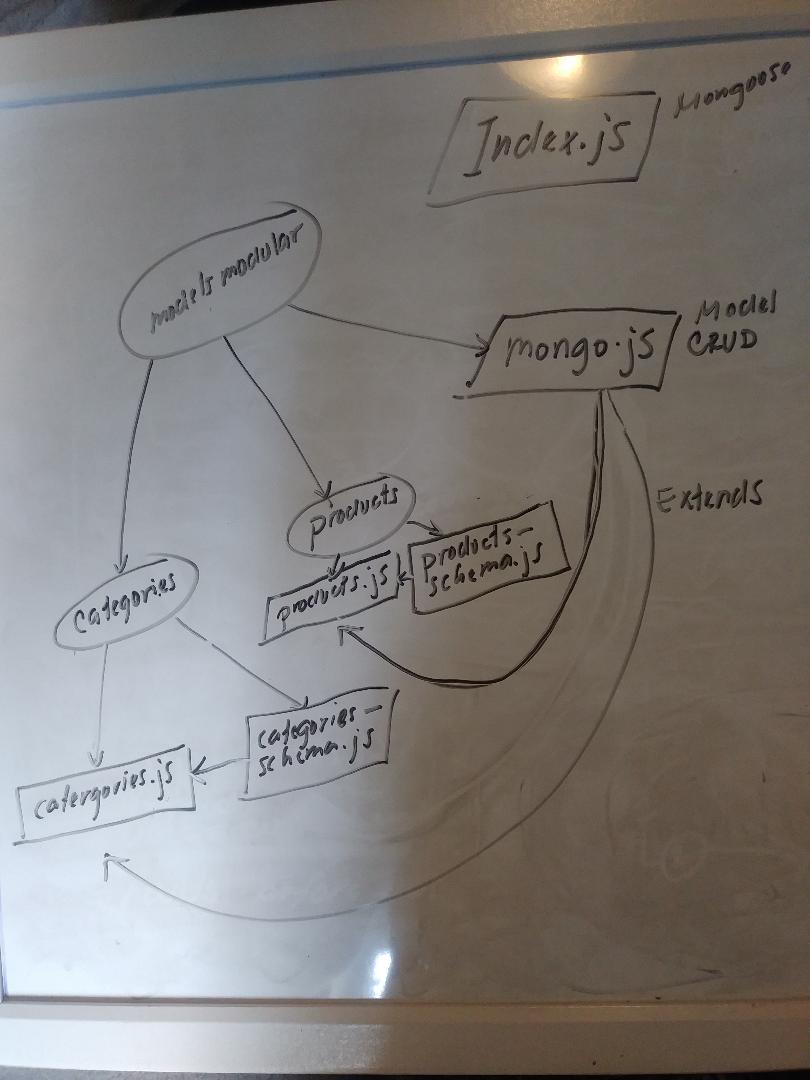 Index.js
Mongoose
models modular
mongo.js
Model
CRUD
Extends
products
products-
schema.js
products.js
categories
categories-
schema.js
catergories.js